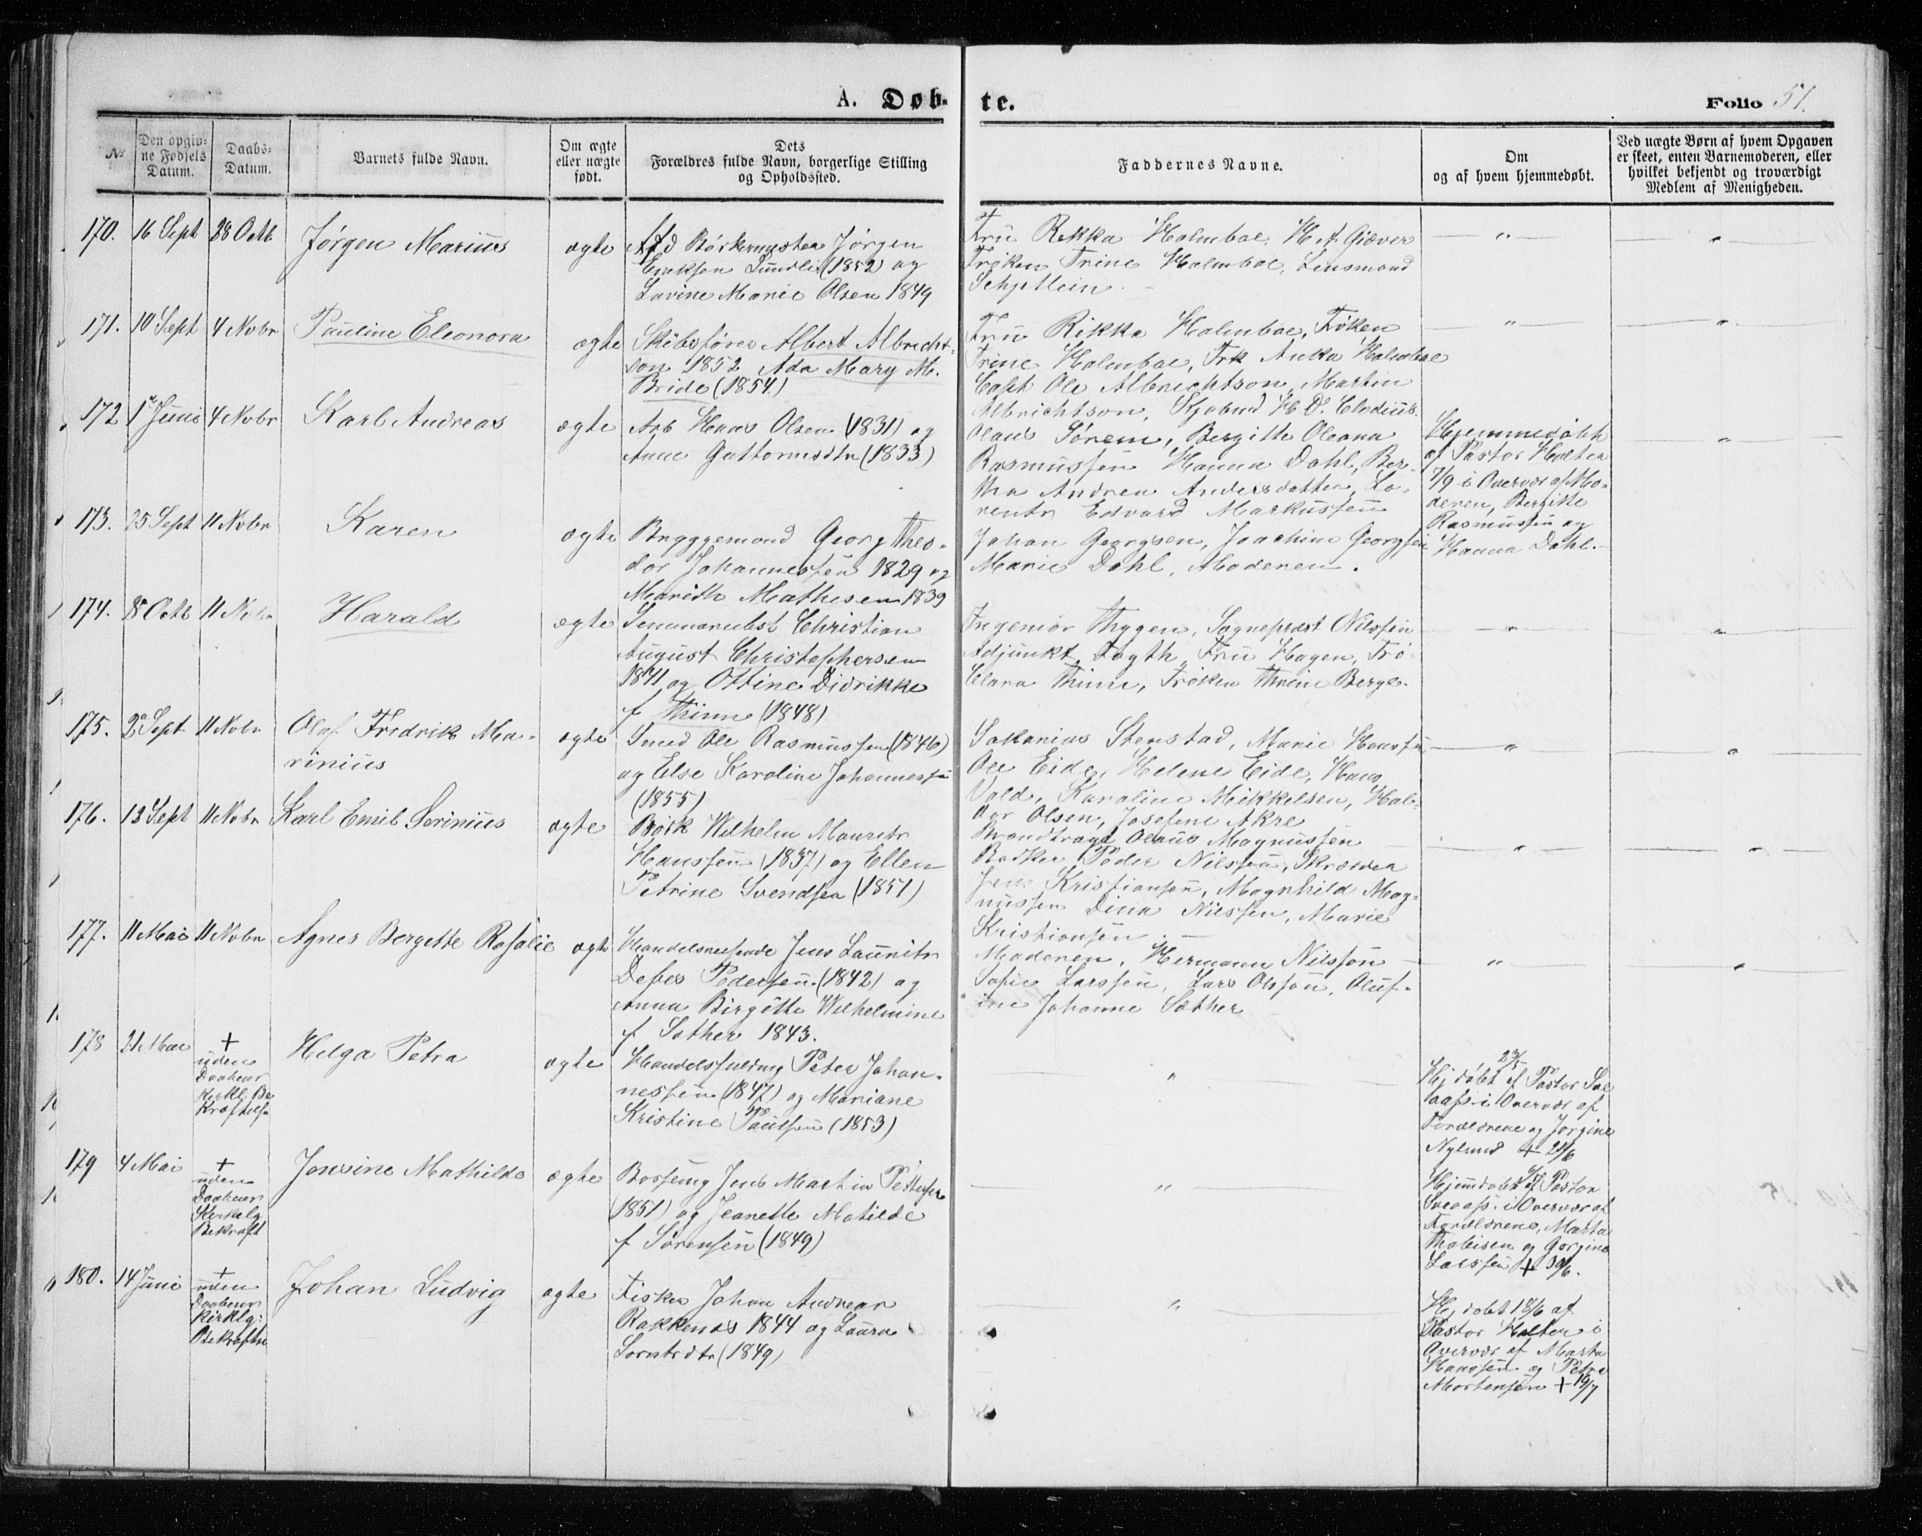 A. Døb-te.
Folio 51.
No
Den opgivne Fødsels Datum.
Daabs-Datum.
Barnets fulde Navn.
Om ægte eller uægte født.
Dets Forældres fulde Navn, borgerlige Stilling og Opholdssted.
Faddernes Navne.
Om og af hvem hjemmedøbt.
Ved uægte Børn af hvem Opgaven er skeet, enten Barnemoderen, eller hvilket bekjendt og troværdigt Medlem af Menigheden.
170. 16 Sept 28 Octb Jørgen Marius ægte
Jørgen
Eriksen Sundli (1852) og
Lavine Marie Olsen 1849
Fru Rikka Holmboe, H. A. Giæver
Frøken Trine Holmboe, Lensmand
171. 10 Sept 4 Novbr Pauline Eleonora ægte
Skibsfører Albert Albricht-
son 1852 Ada Mary Mc.
Bride (1854)
Fru Rikka Holmboe, Frøken
Trine Holmboe, Frk Anka Holmboe
Capt Ole Albrichtson, Martin
Albrichtson, Kjøbmd H. D. Clodius.
172 1 Juni 4 Novbr Karl Andreas ægte
Arb Hans Olsen (1831) og
Anne Guttormsdtr (1833)
Olaus Sørem, Bergitte Oleana
Rasmussen Hanna Dahl, Ber-
tha Andrea Andersdatter, Lo-
rentz Edvard Markussen
Hjemmedøbt
af Pastor Holter
7/9 i Overvær af Mo-
deren, Bergitte
Rasmussen og
Hanna Dahl.
173. 25 Sept 11 Novbr Karen ægte
Bryggemand Georg Theo-
dor Johannessen 1829 og
Mareth Mathisen 1839
Johan Georgsen, Joachim Georgsen
Marie Dahl, Moderen.
174. 8 Octb 11 Novbr Harald ægte
Christian
August Christophersen
1841 og Ottine Didrikke
f Thinn (1848)
Ingeniør Thygen, Sognepræst Nilssen
Adjunkt Fogth, Fru Hagen, Frø
Clara Thinn, Frøken Thrine Berge.
175. 2 Sept 11 Novbr Olaf Fredrik Ma-
rinius ægte
Smed Ole Rasmussen (1846)
og Else Karoline Johannessen
(1855)
Sakarias Stenstad, Marie Hanssen
Ole Eide, Helene Eide, Hans
Vold, Karoline Mikkelsen, Hal-
dor Olsen, Josefine Akre
176. 13 Sept 11 Novbr Karl Emil Sorinius ægte
Wilhelm Mauritz
Hanssen (1837) og Ellen
Petrine Svendsen (1851)
Olaus Magnussen
Peder Nilssen,
Jens Kristiansen, Magnhild Mag-
nussen Dina Nilssen, Marie
Kristiansen.
177. 11 Mai 11 Novbr Agnes Bergette Rosalie ægte
Handelsreisende Jens Lauritz
Debes Pedersen (1842) og
Anna Birgitte Wilhelmine
f Sæther 1843.
Moderen, Hermann Nilsson
Sofie Larssen, Lars Olsson, Oluf-
ine Johanne Sæther
178 21 Mai + uden
Daabens
Kirkl. Be
kræftelse
Helga Petra ægte
Handelsfuldmg Peter Johan-
nessen (1847) og Mariane
Kristine Paulsen (1853)
23/5
Hj døbt af Pastor Sve
aass i Overvær af
Forældrene og Jorgine
Nylund + 24/6
179 4 Mai + uden
Daabens
Kirkelg
Bekræft
Jensine Mathilde ægte
Jens Martin Pettersen
(1851) og Jeanette Matilde
f Sørensen (1849)
Hjemdøbt af Pastor
Sveaass i Overvær af
Forældrene, Marta
Thobisen og Gorgine
Larssen + 30/6.
180. 14 Juni + uden
Daabens
Kirklg:
Bekræftelse
Johan Ludvig ægte
Fisker Johan Andreas
Rakkenes 1844 og Laura
Lorntzdtr (1849)
Hj døbt 18/6 af
Pastor Holter i
Overvær af Marta
Hanssen og Petra
Mortensen + 19/7